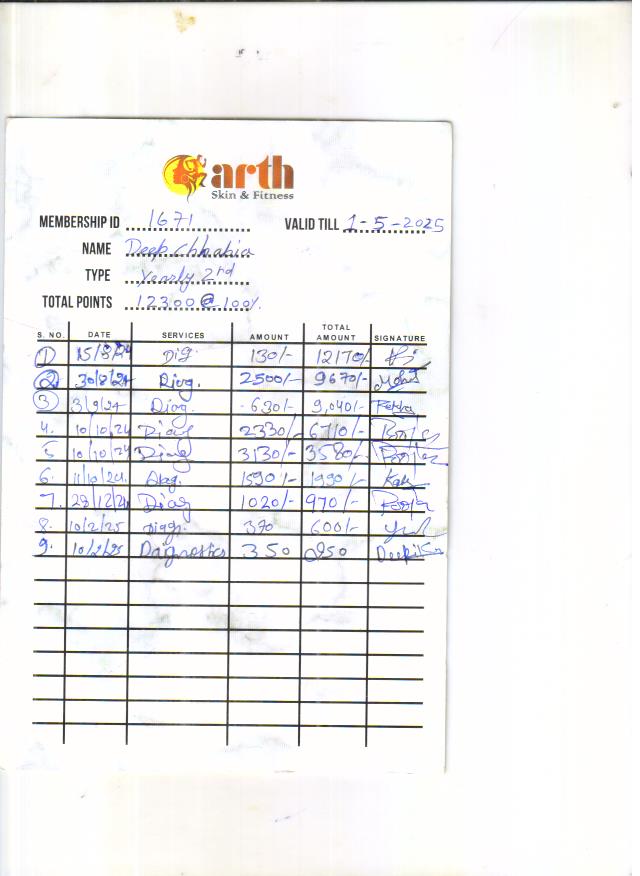 arth
Skin & Fitness
MEMBERSHIP ID 1671 VALID TILL 1-5-2025
NAME Deep Chhabia
TYPE Yearly 2nd
TOTAL POINTS 12300@100%
S. NO. DATE SERVICES AMOUNT TOTAL AMOUNT SIGNATURE
1 15/8/24 Dig. 130/- 12170/-
2 30/8/24 Diag. 2500/- 9670/-
3 3/9/24 Diag. 630/- 9,040/-
4. 10/10/24 Diag 2330/- 6710/-
5 10/10/24 Diag 3130/- 3580/-
6. 11/10/24 Diag. 1590/- 1990/-
7. 28/12/24 Diag 1020/- 970/-
8. 10/2/25 Diag. 370 600/-
9. 10/2/25 Daignostics 350 250